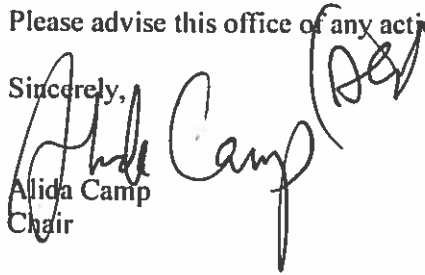 Please advise this office of any acti
Sincerely,
Alida Camp
Alida Camp
Chair